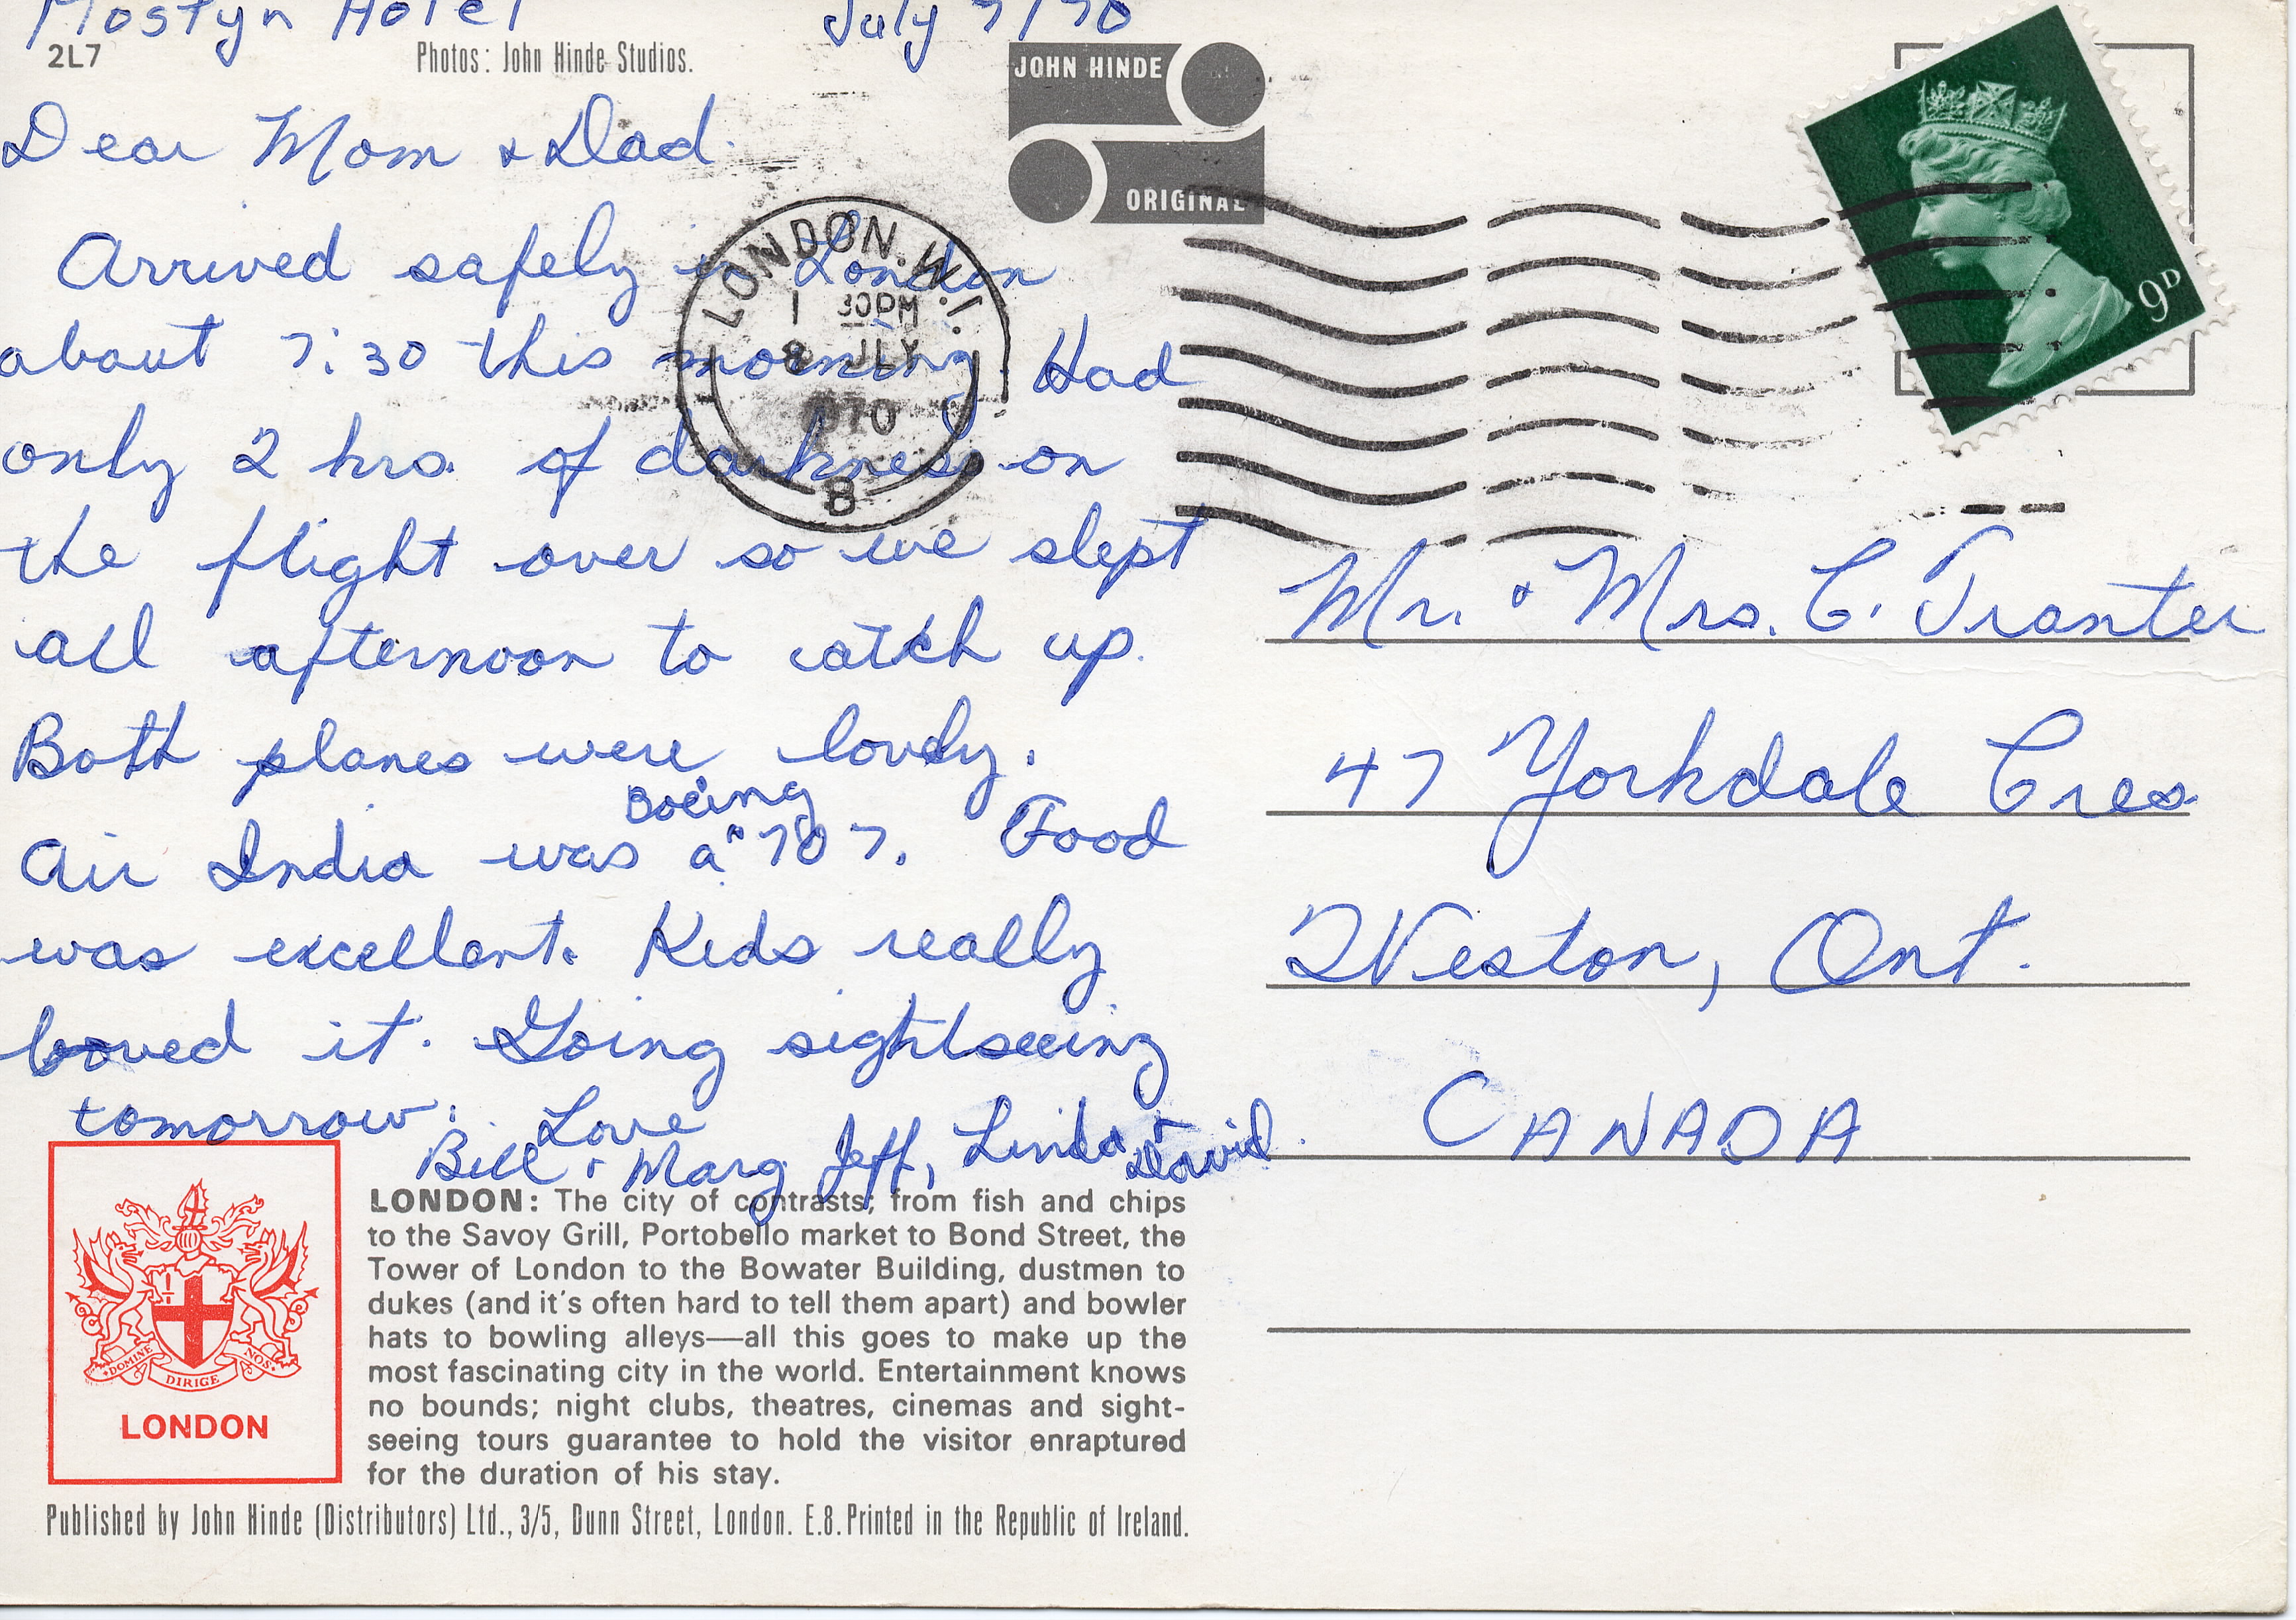 Mostyn Hotel July 7/70
2L7
Photos: John Hinde Studios.
JOHN HINDE
ORIGINAL
9D
LONDON. W.1.
1 30PM
8 JLY
1970
8
Dear Mom & Dad.
Arrived safely in London
about 7:30 this morning. Had
only 2 hrs. of darkness on
the flight over so we slept
all afternoon to catch up.
Both planes were lovely.
Boeing
Air India was a "707. Food
was excellent. Kids really
loved it. Going sightseeing
tomorrow. Love
Bill & Marg Jeff, Linda +
David.
Mr. & Mrs. C. Tranter
47 Yorkdale Cres.
Weston, Ont.
CANADA
DOMINE DIRIGE NOS
LONDON
LONDON: The city of contrasts; from fish and chips
to the Savoy Grill, Portobello market to Bond Street, the
Tower of London to the Bowater Building, dustmen to
dukes (and it's often hard to tell them apart) and bowler
hats to bowling alleys—all this goes to make up the
most fascinating city in the world. Entertainment knows
no bounds; night clubs, theatres, cinemas and sight-
seeing tours guarantee to hold the visitor enraptured
for the duration of his stay.
Published by John Hinde (Distributors) Ltd., 3/5, Dunn Street, London. E.8. Printed in the Republic of Ireland.